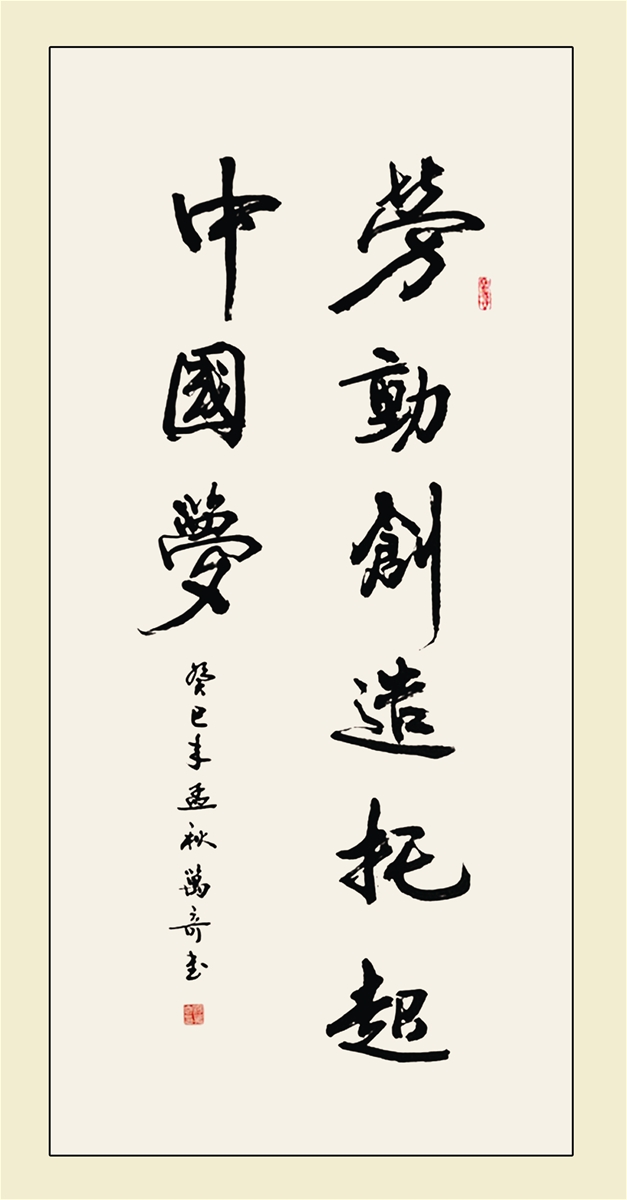 勞動創造托起
中國夢
癸巳年孟秋萬奇書